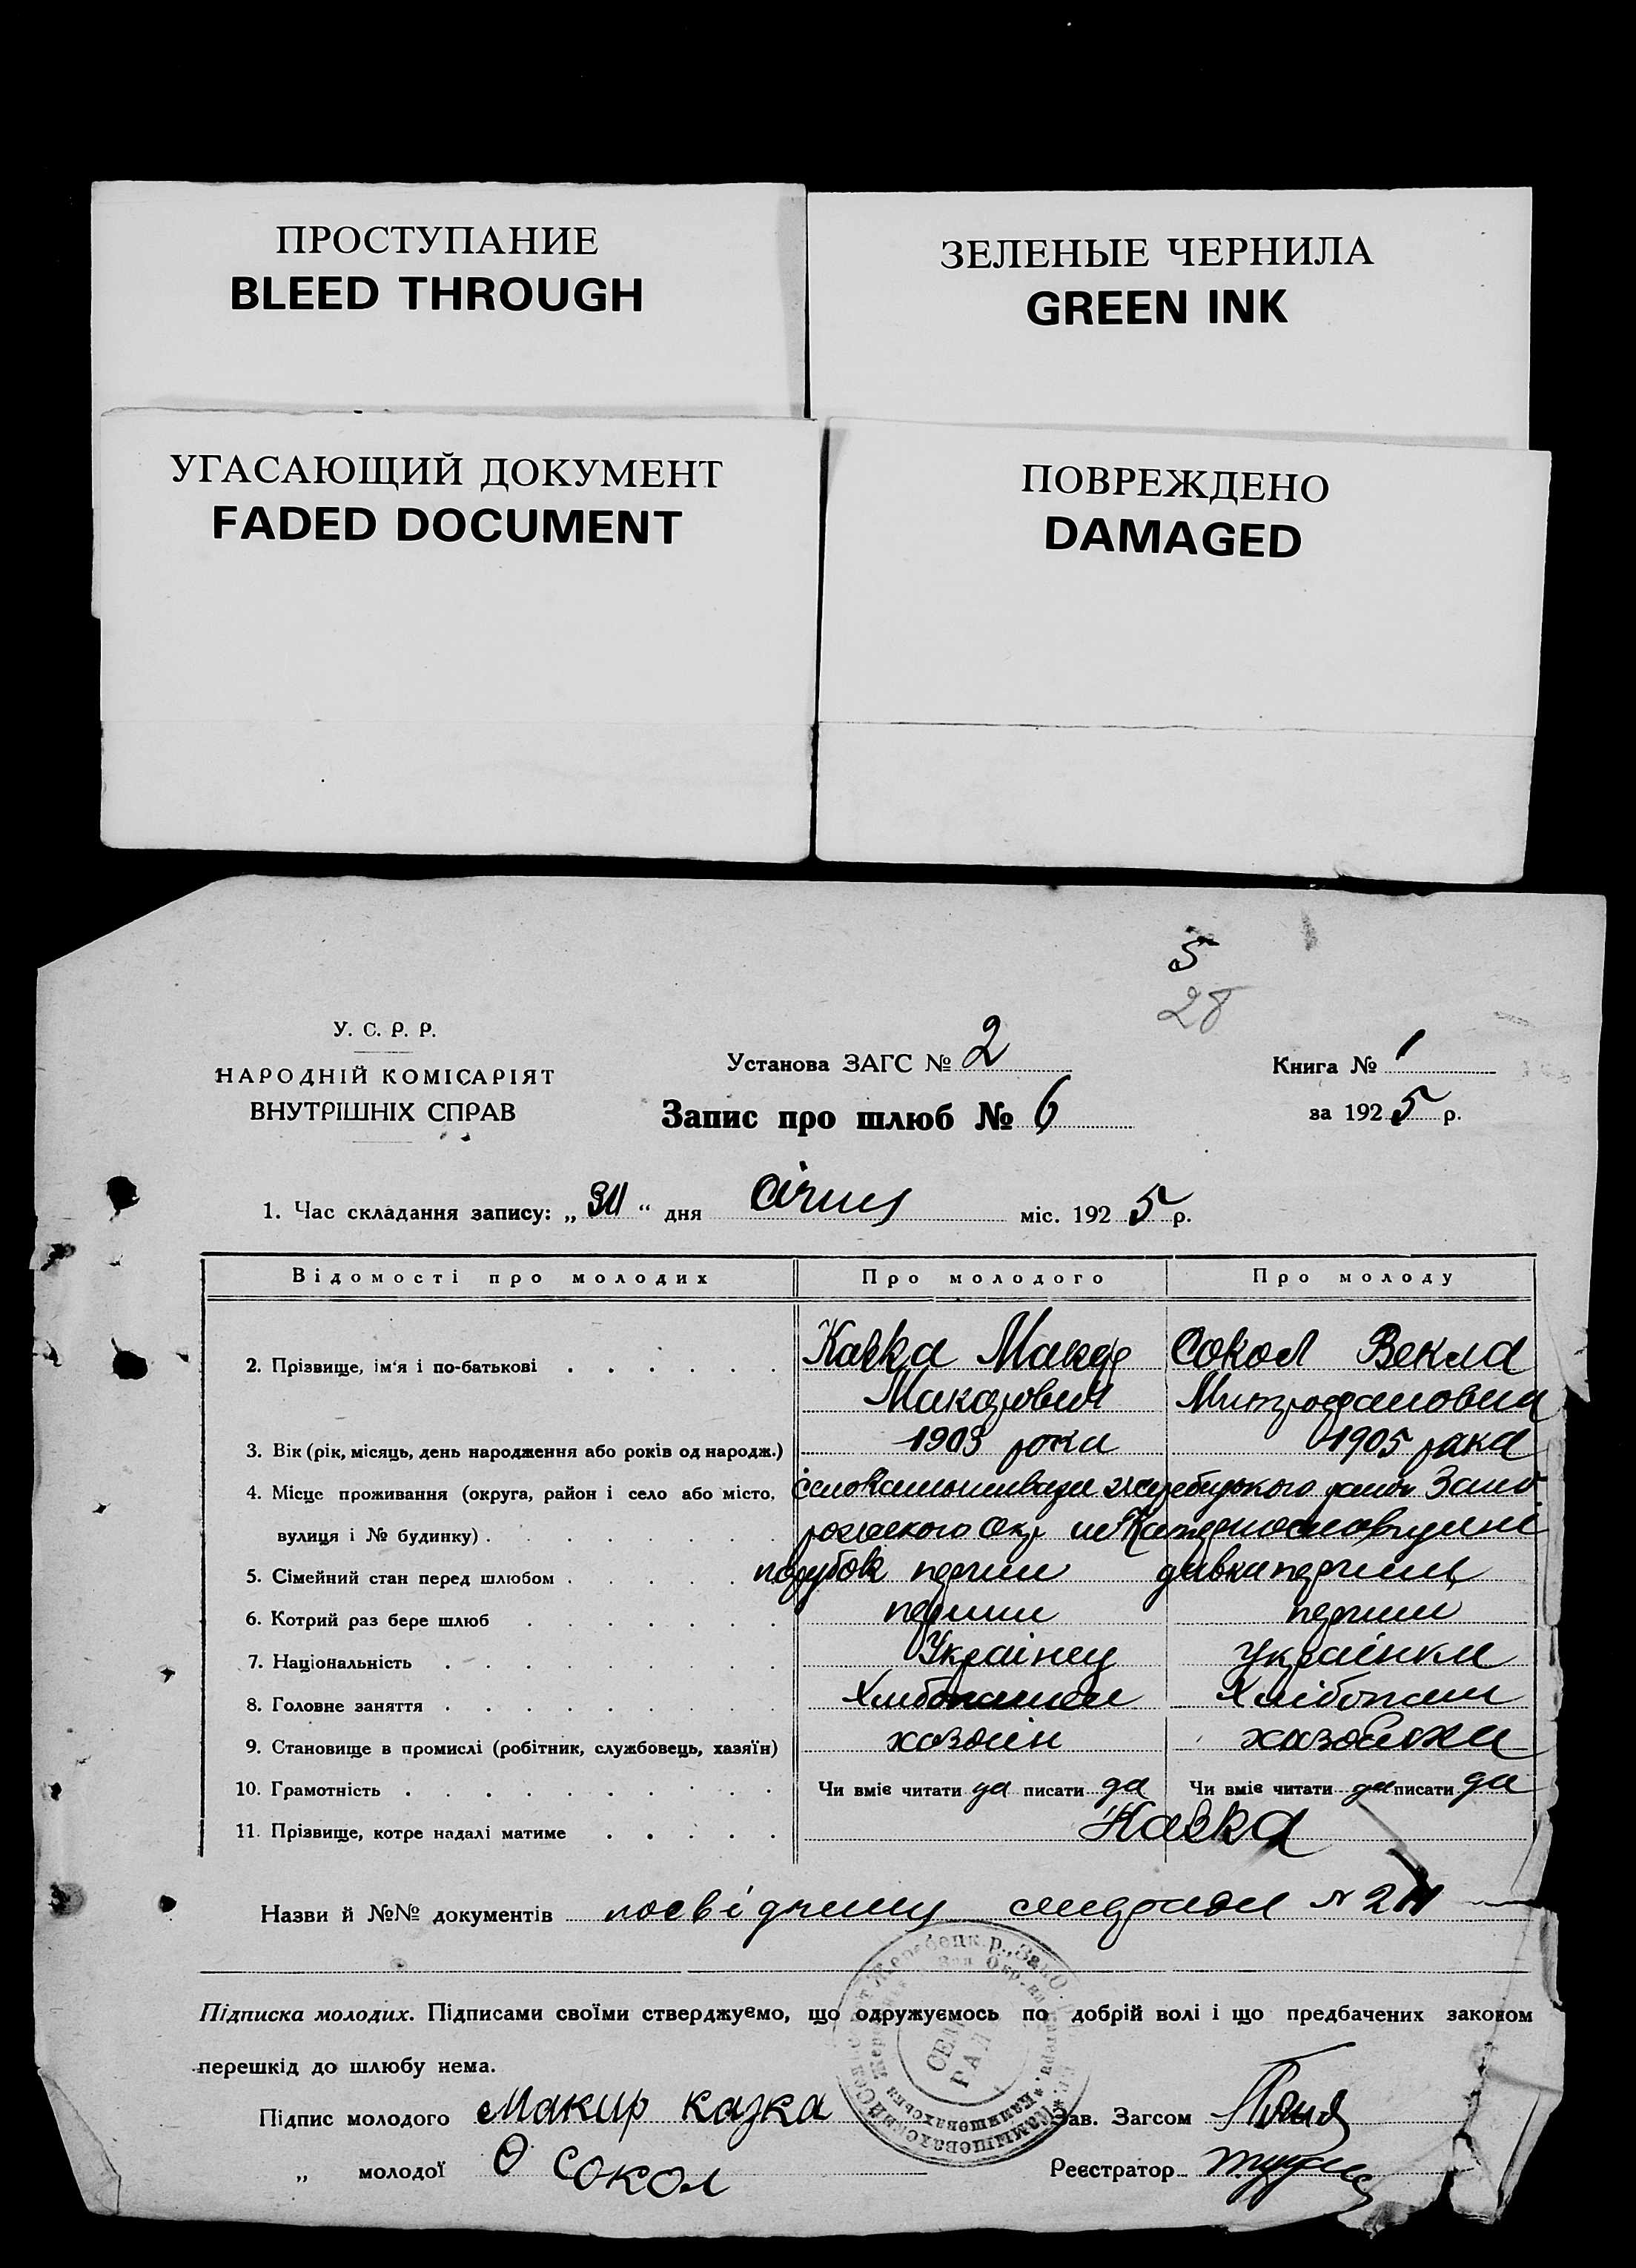 ПРОСТУПАНИЕ
BLEED THROUGH
ЗЕЛЕНЫЕ ЧЕРНИЛА
GREEN INK
УГАСАЮЩИЙ ДОКУМЕНТ
FADED DOCUMENT
ПОВРЕЖДЕНО
DAMAGED
5
28
У. С. Р. Р.
НАРОДНІЙ КОМІСАРІЯТ
ВНУТРІШНІХ СПРАВ
Установа ЗАГС № 2
Книга № 1
Запис про шлюб № 6
за 1925 р.
1. Час складання запису: „ “ дня січня міс. 1925 р.
Відомості про молодих Про молодого Про молоду
2. Прізвище, ім'я і по-батькові Сокол Векла
Макарович Митрофановна
3. Вік (рік, місяць, день народження або років од народж.) 1903 рока 1905 рока
4. Місце проживання (округа, район і село або місто,
вулиця і № будинку)
5. Сімейний стан перед шлюбом парубок перши дивка
6. Котрий раз бере шлюб перши перши
7. Національність Украінец украінка
8. Головне заняття
9. Становище в промислі (робітник, службовець, хазяїн) хозяін хозяйка
10. Грамотність Чи вміє читати да писати да Чи вміє читати да писати да
11. Прізвище, котре надалі матиме
Назви й №№ документів
Підписка молодих. Підписами своїми стверджуємо, що одружуємось по добрій волі і що предбачених законом
перешкід до шлюбу нема.
Підпис молодого Макир
Зав. Загсом
„ молодої Сокол
Реєстратор